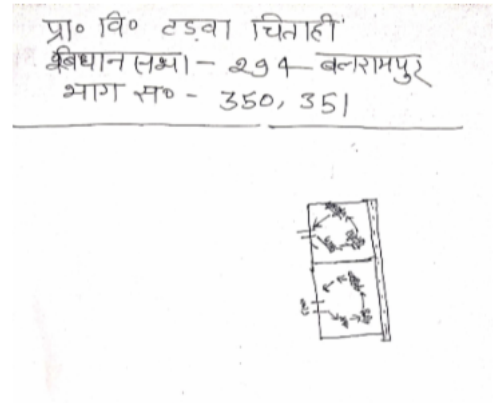 प्रा० वि० टडवा चिताही
बिधान सभा - 294 - बलरामपुर
भाग स० - 350, 351